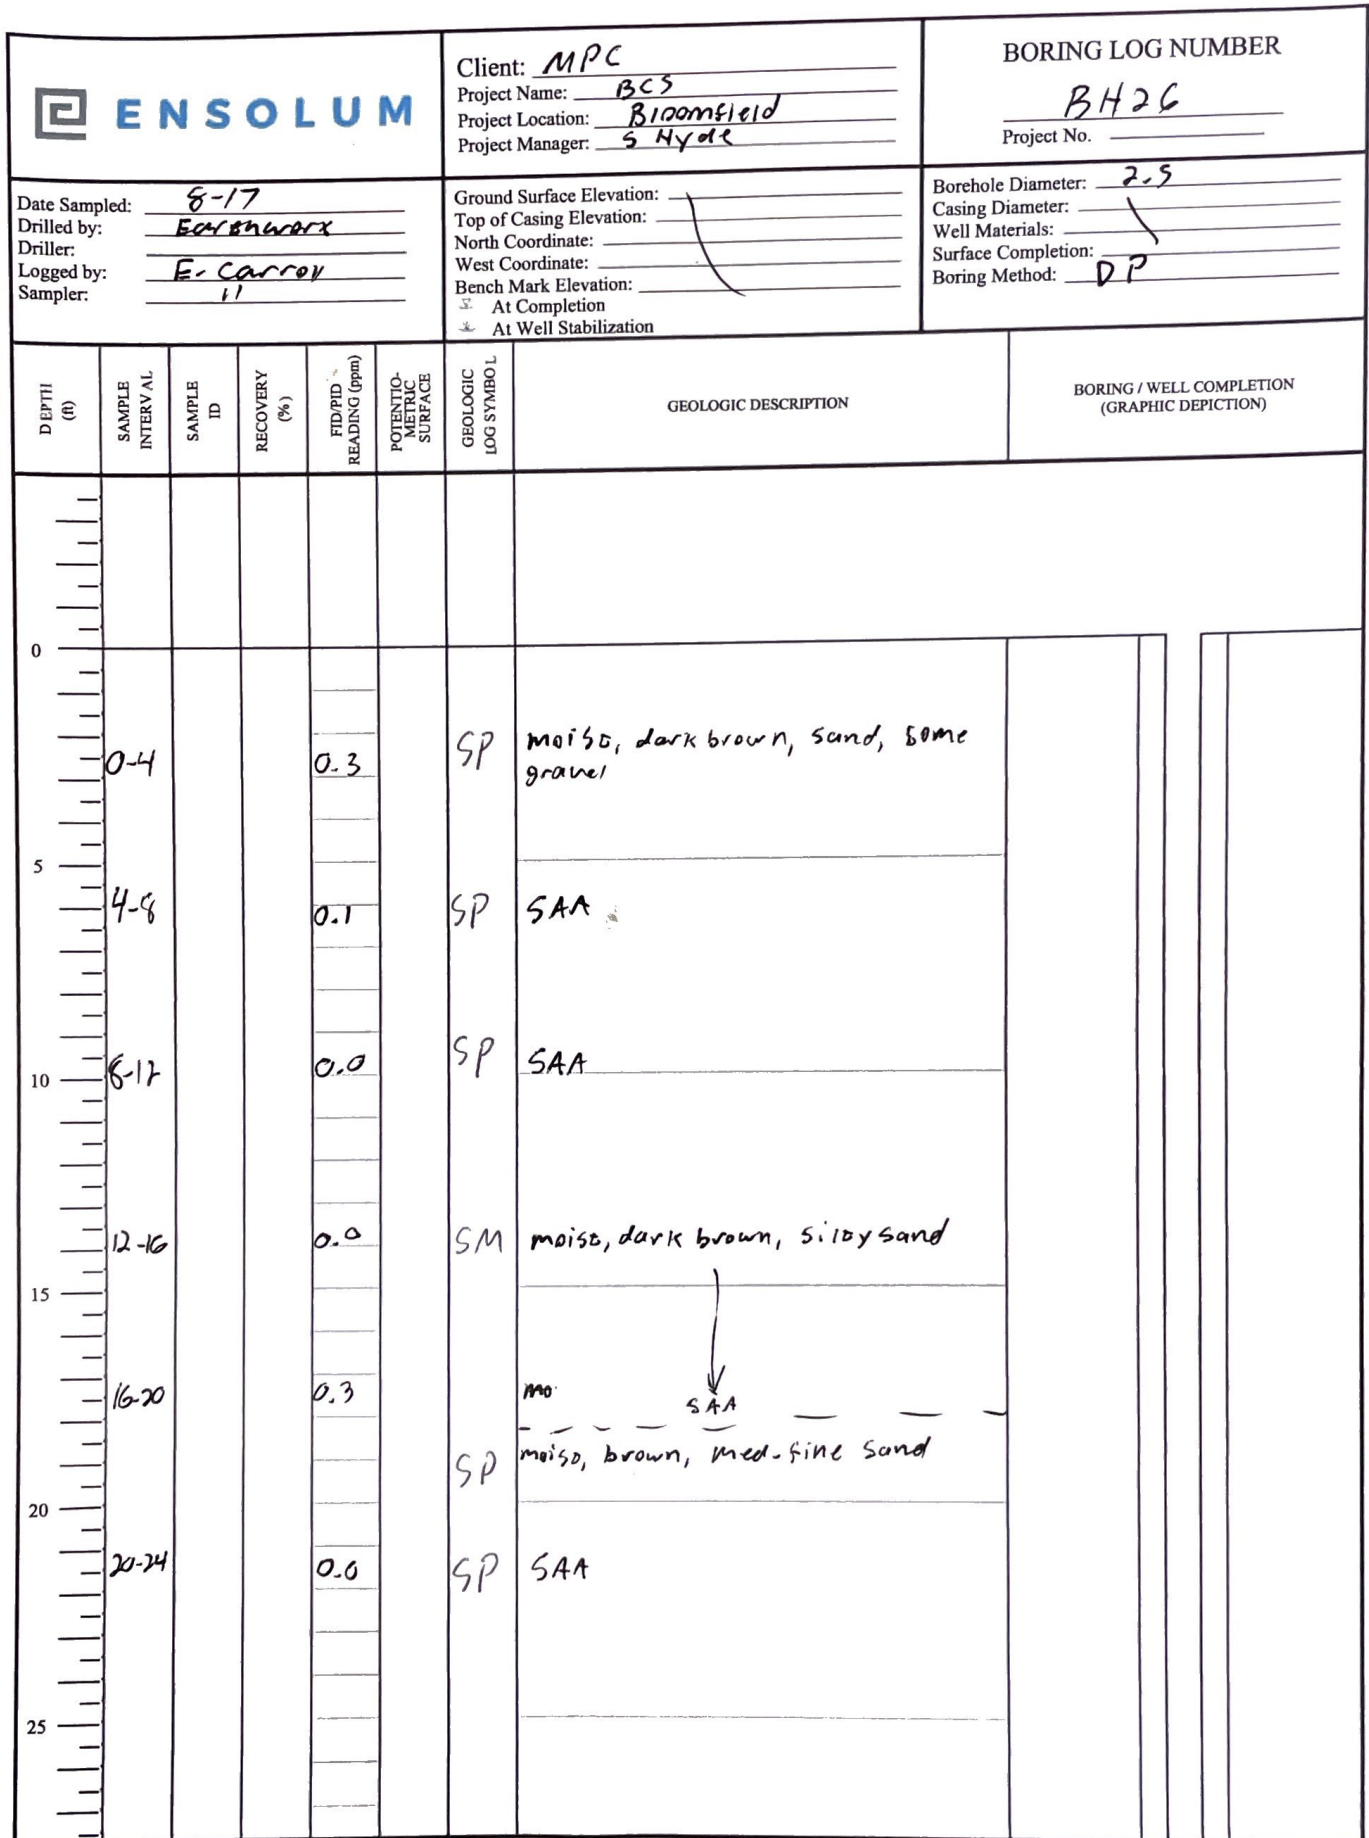 ENSOLUM
Client: MPC
Project Name: BCS
Project Location: Bloomfield
Project Manager: S Hyde
BORING LOG NUMBER
BH26
Project No.
Date Sampled: 8-17
Drilled by: Earthworx
Driller:
Logged by: E. Carroll
Sampler: 11
Ground Surface Elevation:
Top of Casing Elevation:
North Coordinate:
West Coordinate:
Bench Mark Elevation:
At Completion
At Well Stabilization
Borehole Diameter: 2.5
Casing Diameter:
Well Materials:
Surface Completion:
Boring Method: DP
DEPTH (ft)
SAMPLE INTERVAL
SAMPLE ID
RECOVERY (%)
FID/PID READING (ppm)
POTENTIO-METRIC SURFACE
GEOLOGIC LOG SYMBOL
GEOLOGIC DESCRIPTION
BORING / WELL COMPLETION
(GRAPHIC DEPICTION)
0
0-4 0.3 SP moist, dark brown, sand, some
gravel
5
4-8 0.1 SP SAA
10 8-12 0.0 SP SAA
12-16 0.0 SM moist, dark brown, silty sand
15
16-20 0.3 mo
SAA
SP moist, brown, med-fine sand
20
20-24 0.0 SP SAA
25